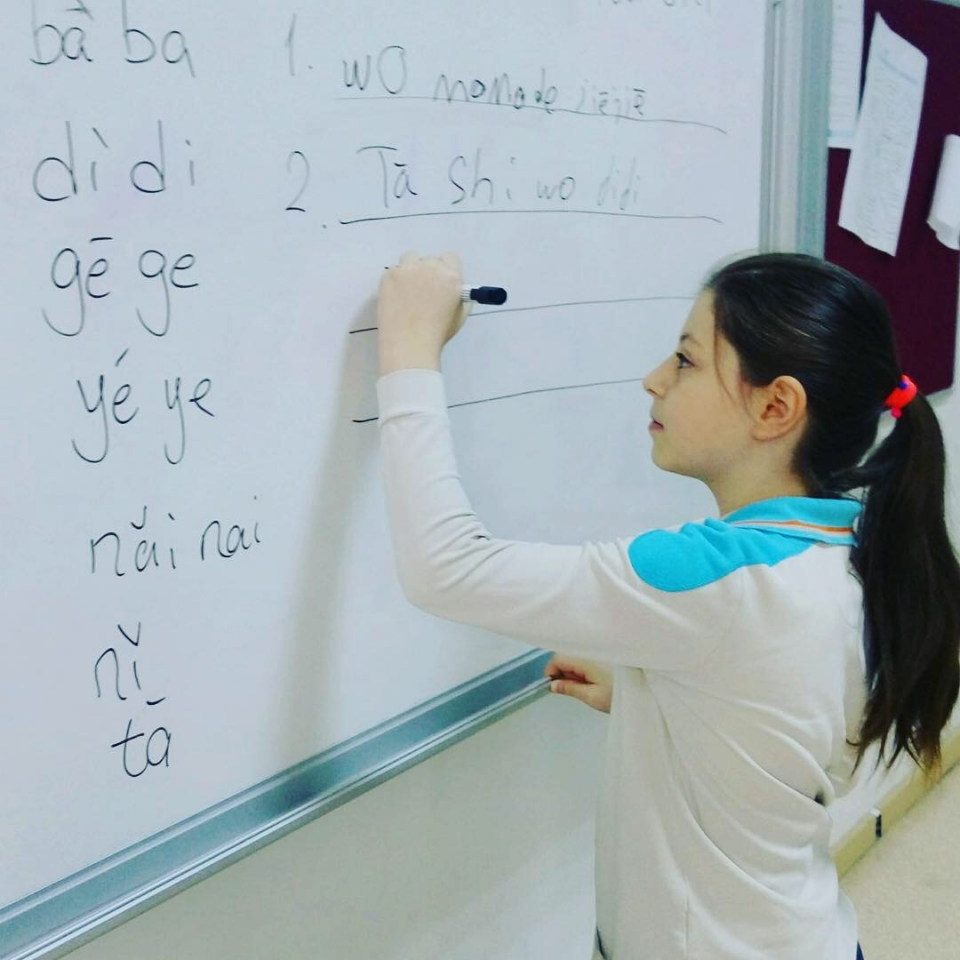 bà ba
dì di
gē ge
yé ye
năi nai
nĭ
tā
1. wo mamade jiējiē
2. Tā shi wo didi